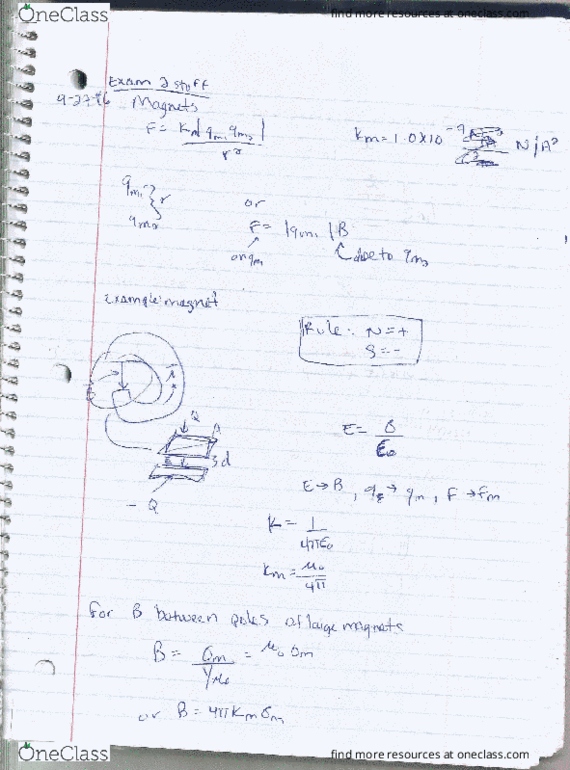 OneClass
find more resources at oneclass.com
Exam 2 stuff
9-27-16 Magnets
F = Km|qm1 qm2| / r²
Km = 1.0×10⁻⁷ N/A²
qm1
qm2 } r
or
F = |qm1|B
on qm1
due to qm2
Example: magnet
Rule: N = +
S = -
Q A
d
- Q
E = σ/ε₀
E → B, qE → qm, F → Fm
K = 1/4πε₀
Km = μ₀/4π
For B between poles of large magnets
B = σm / 1/μ₀ = μ₀ σm
or B = 4πKmσm
OneClass
find more resources at oneclass.com